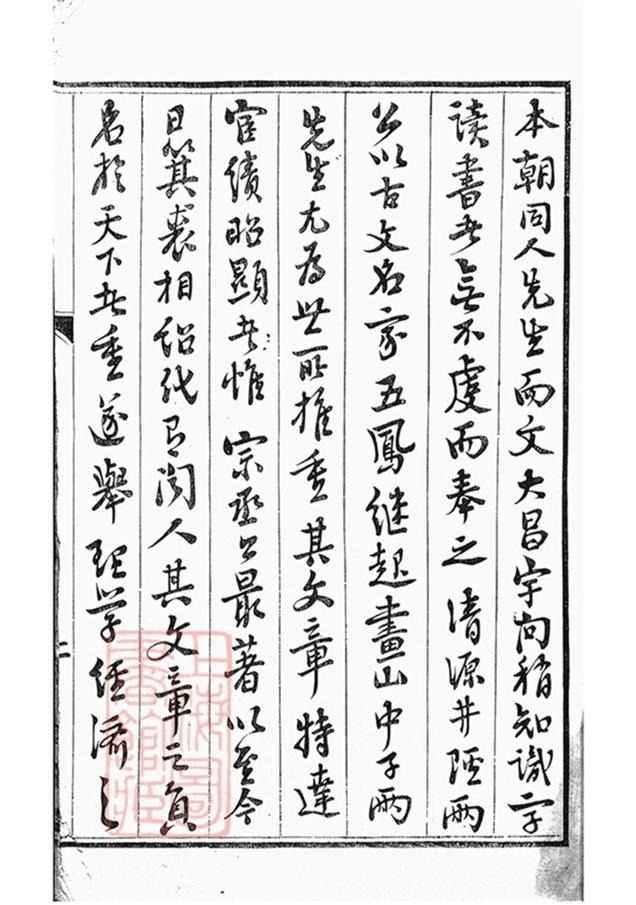 本朝同人先生而文大昌宇內稍知識字
读書者無不虔而奉之 清源井陘兩
公以古文名家五鳳继起畫山中子兩
先生尤為世所推重其文章特達
宦績昭顯者惟 宗丞公最著以至今
日箕裘相紹代有闻人其文章之負
名於天下者重遂舉理学經濟之
二
上海圖書館藏